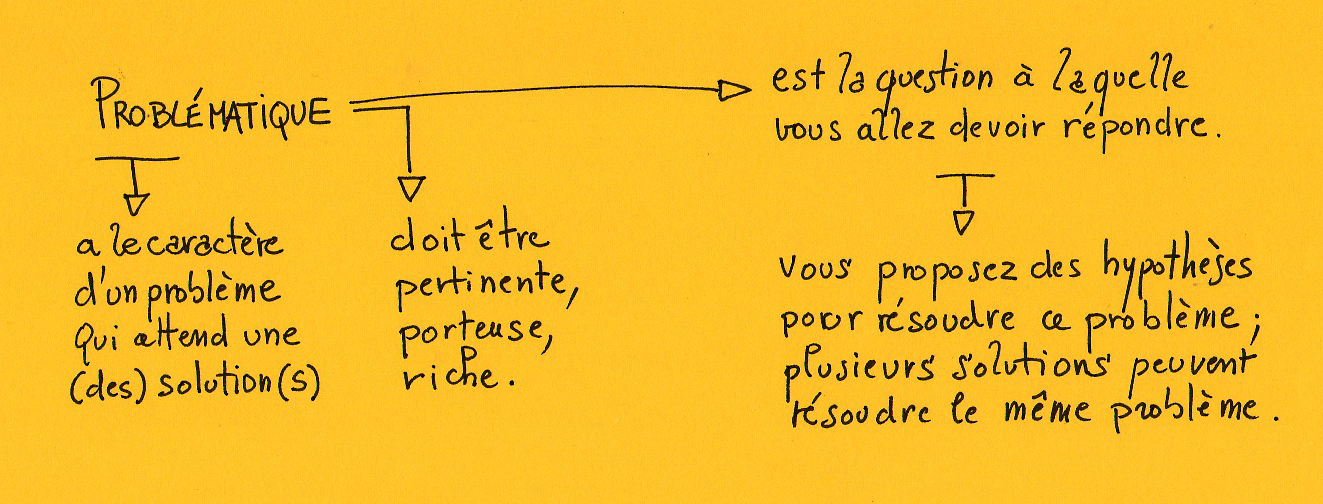 PROBLÉMATIQUE
a le caractère
d'un problème
qui attend une
(des) solution(s)
doit être
pertinente,
porteuse,
riche.
est la question à laquelle
vous allez devoir répondre.
vous proposez des hypothèses
pour résoudre ce problème ;
plusieurs solutions peuvent
résoudre le même problème.